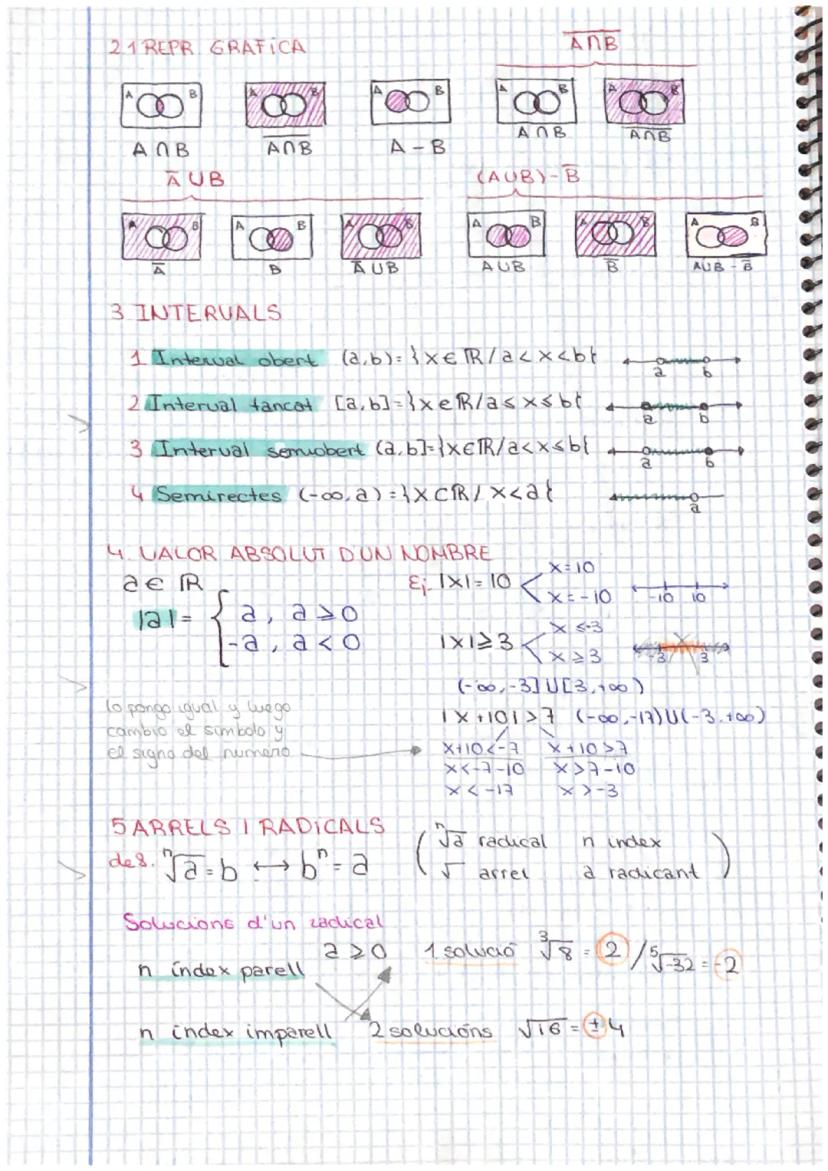 2.1 REPR. GRÀFICA
A̅∩̅B̅
A B
A B
A B
A B
A B
A∩B
A̅∩̅B̅
A - B
A∩B
A̅∩̅B̅
A̅ ∪ B
(A∪B)-B̅
A B
A B
A B
A B
A B
A B
A̅
B
A̅ ∪ B
A∪B
B̅
A∪B - B̅
3. INTERVALS
1 Interval obert (a,b)= }x∈ℝ/a<x<b{
a b
2 Interval tancat [a,b]=}x∈ℝ/a≤x≤b{
a b
3 Interval semiobert (a,b]=}x∈ℝ/a<x≤b{
a b
4 Semirectes (-∞,a)=}x⊂ℝ/x<a{
a
4. VALOR ABSOLUT D'UN NOMBRE
a∈ℝ
|a|= { a, a≥0
-a, a<0
Ej. |x|=10 < x=10
x=-10
-10 10
|x|≥3 < x≤-3
x≥3
-3 3
(-∞,-3]∪[3,+∞)
|x+10|>7 (-∞,-17)∪(-3,+∞)
lo pongo igual y luego
cambio el símbolo y
el signo del numero
x+10<-7 x+10>7
x<-7-10 x>7-10
x<-17 x>-3
5 ARRELS I RADICALS
def. ⁿ√a=b ↔ bⁿ=a
( ⁿ√a radical n index
√ arrel a radicant )
Solucions d'un radical
n índex parell a≥0 1 solució ³√8=2 / ⁵√-32=-2
n índex imparell 2 solucións √16=±4